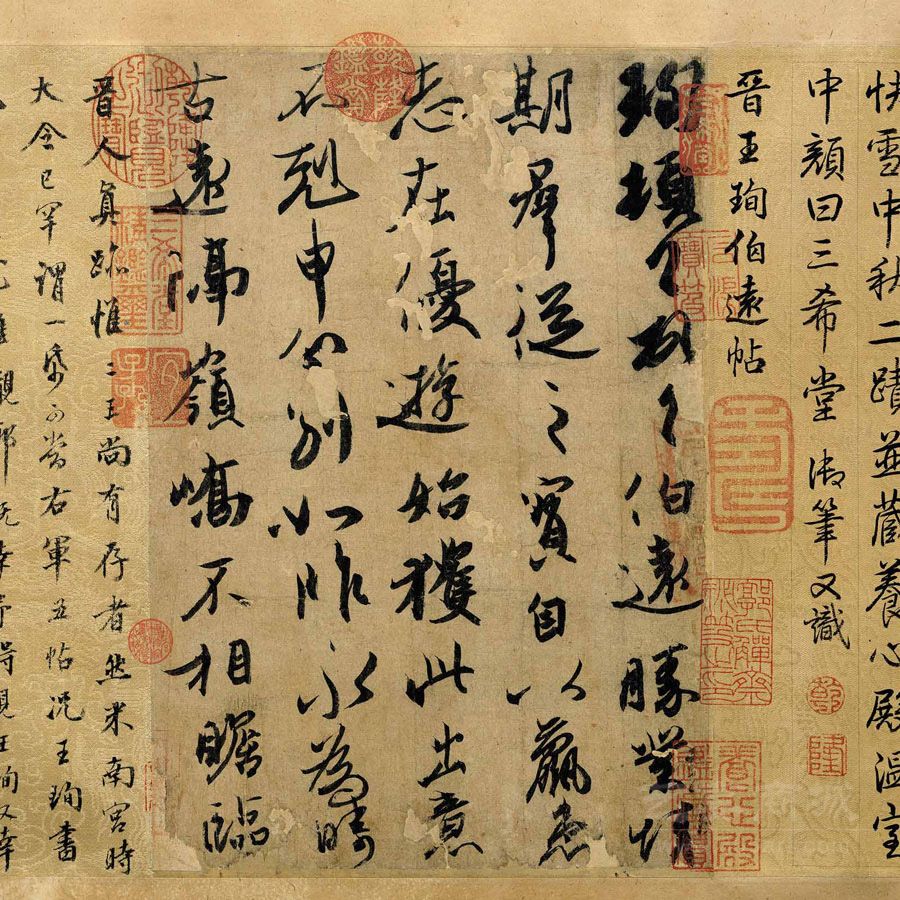 快雪中秋二蹟並藏養心殿溫室
中顏曰三希堂御筆又識
晉王珣伯遠帖
珣頓首頓首伯遠勝業情
期群從之寶自以羸患
志在優遊始獲此出意
不剋申分別如昨永為疇
古遠隔嶺嶠不相瞻臨
晉人真跡惟二王尚有存者然米南宮時
大令已罕謂一紙可當右軍五帖況王珣書
視